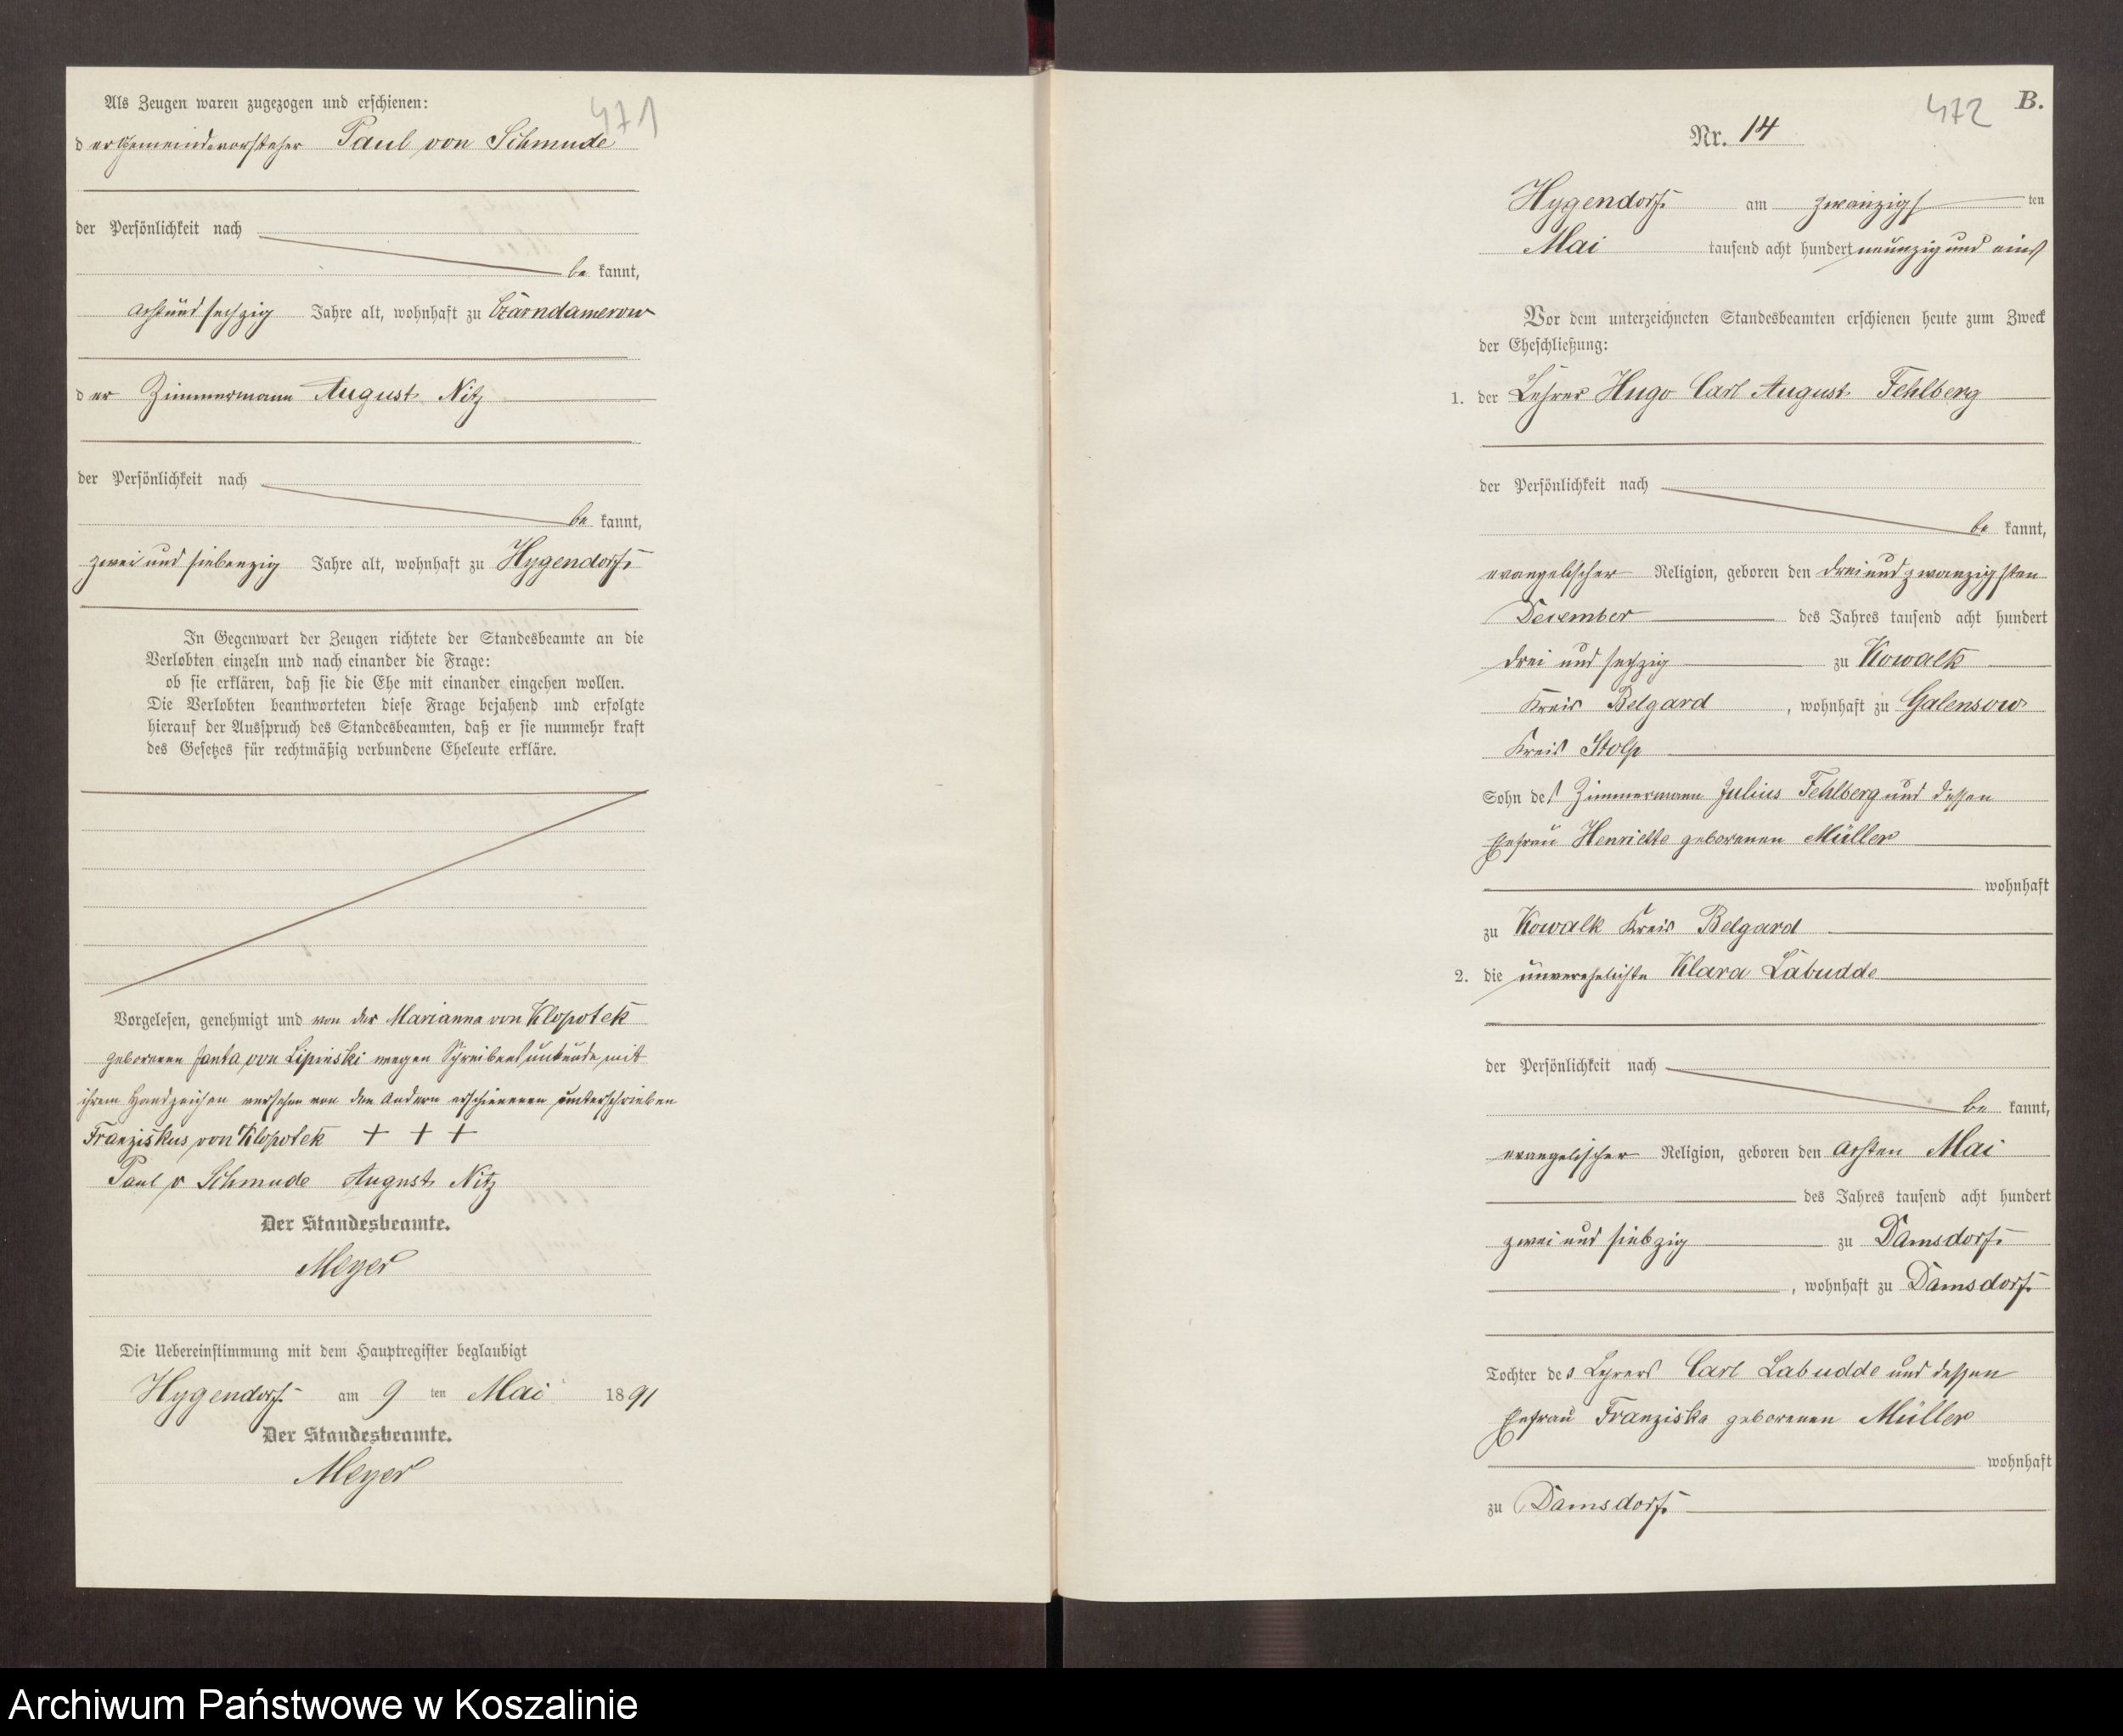 471
Als Zeugen waren zugezogen und erschienen:
der Gemeindevorsteher Paul von Schmude
der Persönlichkeit nach
be kannt,
achtund sechzig Jahre alt, wohnhaft zu Czarndamerow
der Zimmermann August Nitz
der Persönlichkeit nach
be kannt,
zwei und siebenzig Jahre alt, wohnhaft zu Hygendorf
In Gegenwart der Zeugen richtete der Standesbeamte an die
Verlobten einzeln und nach einander die Frage:
ob sie erklären, daß sie die Ehe mit einander eingehen wollen.
Die Verlobten beantworteten diese Frage bejahend und erfolgte
hierauf der Ausspruch des Standesbeamten, daß er sie nunmehr kraft
des Gesetzes für rechtmäßig verbundene Eheleute erkläre.
Vorgelesen, genehmigt und von der Marianna von Klopotek
geborenen Janta von Lipinski wegen Schreibensunkunde mit
ihrem Handzeichen versehen von den Andern erschienenen unterschrieben
Franziskus von Klopotek + + +
Paul v Schmude August Nitz
Der Standesbeamte.
Meyer
Die Uebereinstimmung mit dem Hauptregister beglaubigt
Hygendorf am 9 ten Mai 1891
Der Standesbeamte.
Meyer
472
B.
Nr. 14
Hygendorf am zwanzigs ten
Mai tausend acht hundert neunzig und eins
Vor dem unterzeichneten Standesbeamten erschienen heute zum Zweck
der Eheschließung:
1. der Lehrer Hugo Carl August Fehlberg
der Persönlichkeit nach
be kannt,
evangelischer Religion, geboren den dreiundzwanzigsten
December des Jahres tausend acht hundert
drei und sechzig zu Kowalk
Kreis Belgard, wohnhaft zu Galensow
Kreis Stolp
Sohn des Zimmermann Julius Fehlberg und dessen
Ehefrau Henriette geborenen Müller
wohnhaft
zu Kowalk Kreis Belgard
2. die unverehelichte Klara Labudde
der Persönlichkeit nach
be kannt,
evangelischer Religion, geboren den achten Mai
des Jahres tausend acht hundert
zwei und siebzig zu Damsdorf
, wohnhaft zu Damsdorf
Tochter des Lehrers Carl Labudde und dessen
Ehefrau Franziska geborenen Müller
wohnhaft
zu Damsdorf
Archiwum Państwowe w Koszalinie